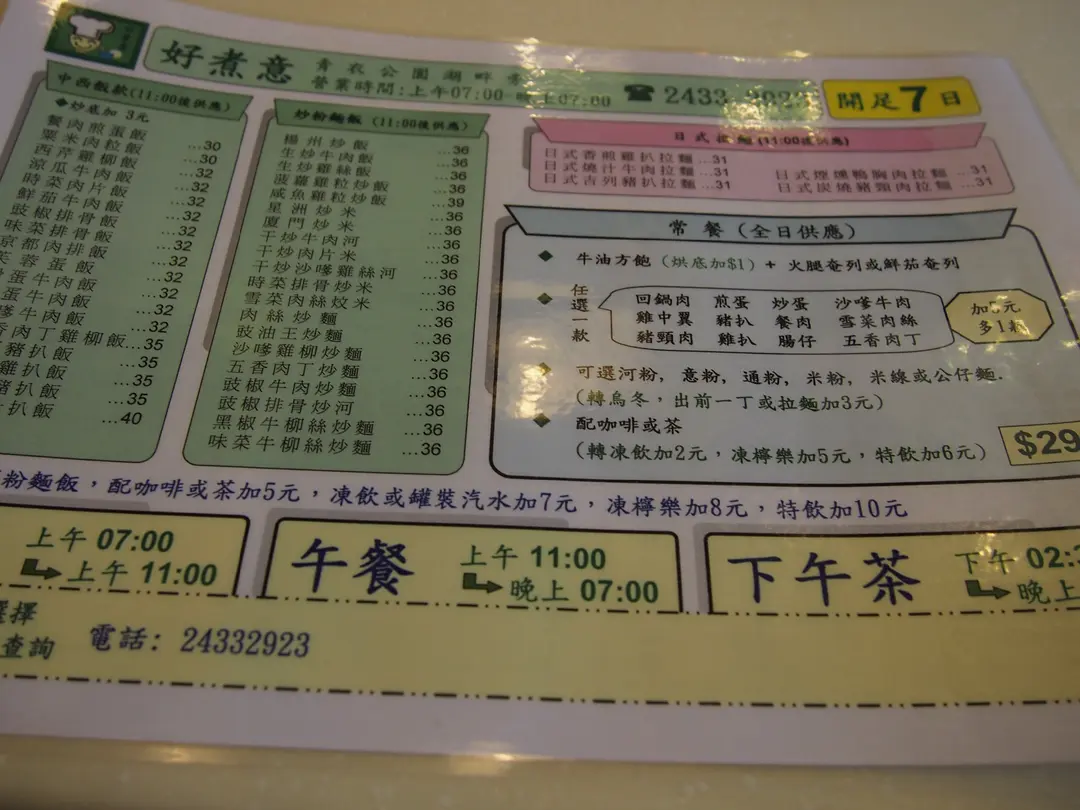 好煮意
青衣公園湖畔
營業時間:上午07:00 晚上07:00
☎ 2433 2923
開足7日
中西飯款(11:00後供應)
◆炒底加 3元
餐肉煎蛋飯 ...30
粟米肉粒飯 ...30
西芹雞柳飯 ...32
涼瓜牛肉飯 ...32
時菜肉片飯 ...32
鮮茄牛肉飯 ...32
豉椒排骨飯 ...32
味菜排骨飯 ...32
京都肉排飯 ...32
芙蓉蛋飯 ...32
蛋牛肉飯 ...32
蛋牛飯 ...32
嗲牛肉飯 ...32
香肉丁雞柳飯...35
豬扒飯 ...35
雞扒飯 ...35
豬扒飯 ...35
扒飯 ...40
炒粉麵飯 (11:00後供應)
楊州炒飯 ...36
生炒牛肉飯 ...36
生炒雞絲飯 ...36
菠蘿雞粒炒飯 ...36
咸魚雞粒炒飯 ...39
星洲炒米 ...36
廈門炒米 ...36
干炒牛肉河 ...36
干炒肉片米 ...36
干炒沙嗲雞絲河 ...36
時菜排骨炒米 ...36
雪菜肉絲炆米 ...36
肉絲炒麵 ...36
豉油王炒麵 ...36
沙嗲雞柳炒麵 ...36
五香肉丁炒麵 ...36
豉椒牛肉炒麵 ...36
豉椒排骨炒河 ...36
黑椒牛柳絲炒麵 ...36
味菜牛柳絲炒麵 ...36
日式拉麵(11:00後供應)
日式香煎雞扒拉麵...31
日式燒汁牛肉拉麵...31
日式吉列豬扒拉麵...31
日式煙燻鴨胸肉拉麵 ...31
日式炭燒豬頸肉拉麵 ...31
常餐(全日供應)
◆ 牛油方飽(烘底加$1) + 火腿奄列或鮮茄奄列
◆ 任選一款
回鍋肉 煎蛋 炒蛋 沙嗲牛肉
雞中翼 豬扒 餐肉 雪菜肉絲
豬頸肉 雞扒 腸仔 五香肉丁
加 元
多1款
◆ 可選河粉, 意粉, 通粉, 米粉, 米線或公仔麵.
(轉烏冬, 出前一丁或拉麵加3元)
◆ 配咖啡或茶
(轉凍飲加2元, 凍檸樂加5元, 特飲加6元)
$29
粉麵飯,配咖啡或茶加5元,凍飲或罐裝汽水加7元,凍檸樂加8元,特飲加10元
上午 07:00
上午 11:00
午餐
上午 11:00
晚上 07:00
下午茶
下午 02:
晚上
選擇
查詢
電話: 24332923